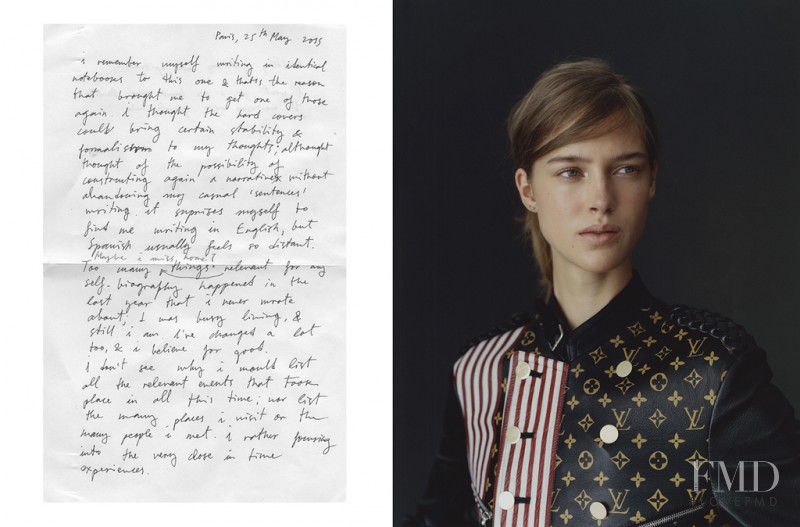 Paris, 25th May 2015
i remember myself writing in identical
notebooks to this one & thats the reason
that brought me to get one of those
again. i thought the hard covers
could bring certain stability &
formalism to my thoughts, althought
thought of the possibility of
constructing again a narrative without
abandoning my casual 'sentences'
writing. it surprises myself to
find me writing in English, but
Spanish usually feels so distant.
Maybe i miss home?
Too many things relevant for any
self-biography happened in the
last year that i never wrote
about, I was busy living, &
still i am. I've changed a lot
too, & i believe for good.
i don't see why i would list
all the relevant events that took
place in all this time; nor list
the many places i visit or the
many people i met. i rather focusing
into the very close in time
experiences.
LV
FMD